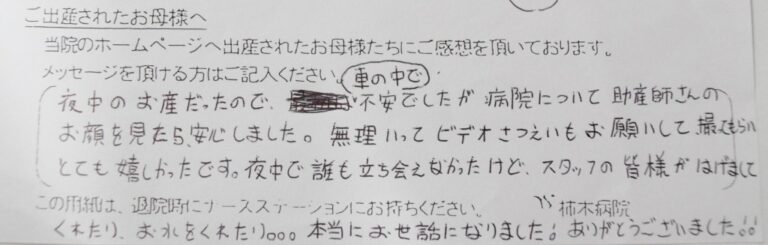 ご出産されたお母様へ
当院のホームページへ出産されたお母様たちにご感想を頂いております。
メッセージを頂ける方はご記入ください。
車の中で
夜中のお産だったので、不安でしたが病院について助産師さんの
お顔を見たら、安心しました。無理いってビデオさつえいもお願いして、撮ってもらい
とても嬉しかったです。夜中で誰も立ち会えなかったけど、スタッフの皆様がはげまして
この用紙は、退院時にナースステーションにお持ちください。 柿木病院
くれたり、お礼をくれたり。。。本当にお世話になりました! ありがとうございました!!